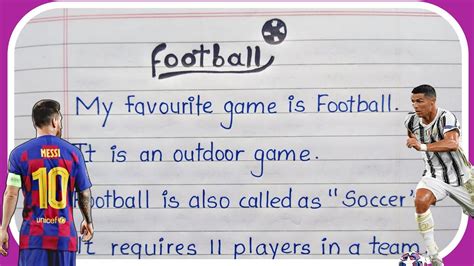 Football
My favourite game is Football.
It is an outdoor game.
Football is also called as "Soccer"
It requires 11 players in a team
MESSI
10
unicef